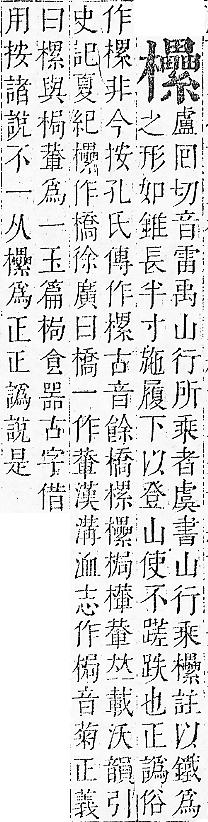 欙盧囘切音雷禹山行所乘者虞書山行乘欙註以鐵爲
之形如錐長半寸施履下以登山使不蹉跌也正譌俗
作樏非今按孔氏傳作樏古音餘橋樏欙梮檋輂𠀤載沃韻引
史記夏紀欙作橋徐廣曰橋一作輂漢溝洫志作梮音菊正義
曰樏與梮輂爲一玉篇梮食器古字借
用按諸說不一从欙爲正正譌說是